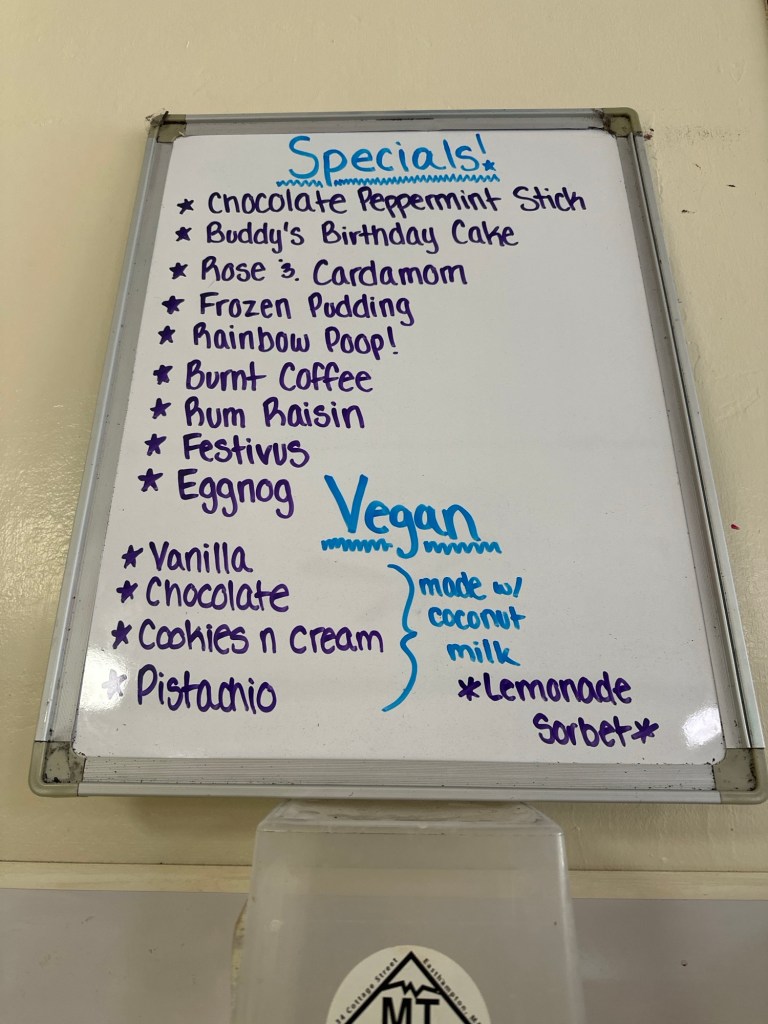 Specials!
* Chocolate Peppermint Stick
* Buddy's Birthday Cake
* Rose & Cardamom
* Frozen Pudding
* Rainbow Poop!
* Burnt Coffee
* Rum Raisin
* Festivus
* Eggnog
Vegan
* Vanilla
* Chocolate
* Cookies n cream
* Pistachio
made w/
coconut
milk
*Lemonade
Sorbet*
Cottage Street
Easthampton,
MT